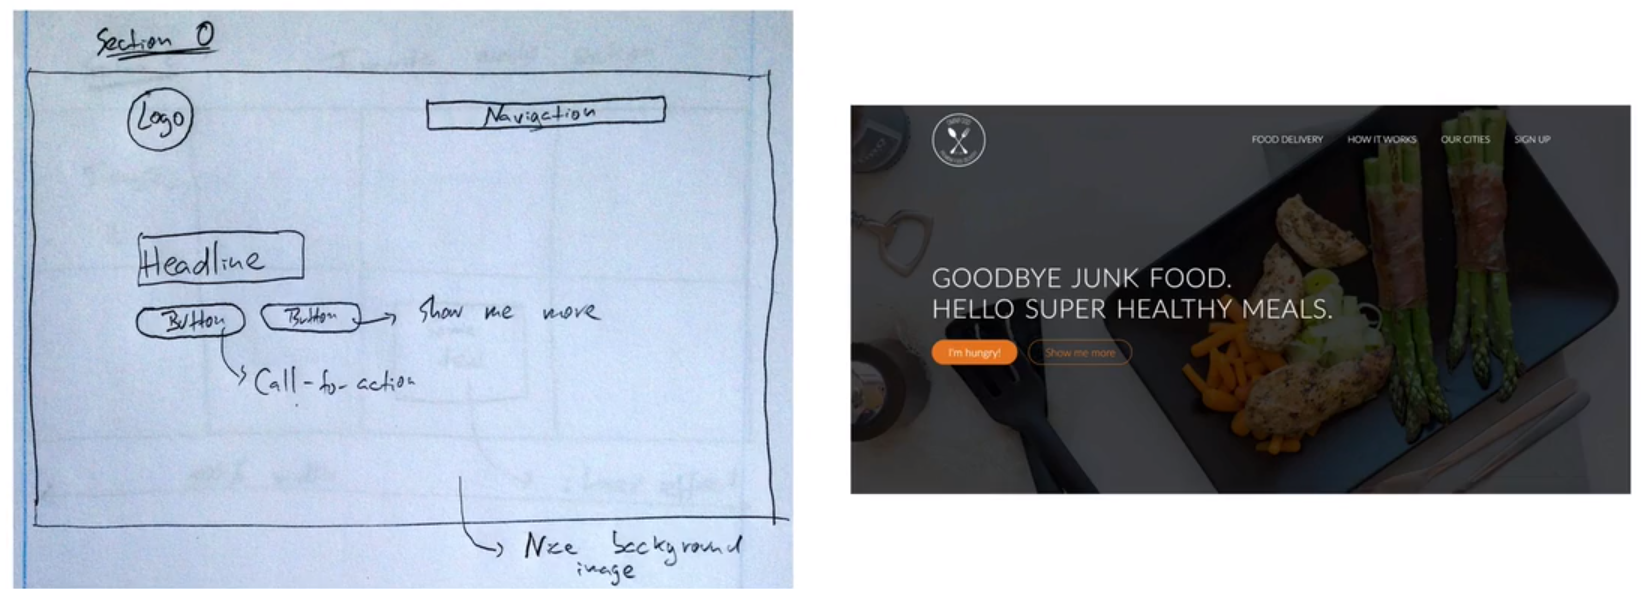 Section 0
Logo
Navigation
Headline
Button
Button
Show me more
Call-to-action
Nice background
image
FOOD DELIVERY HOW IT WORKS OUR CITIES SIGN UP
GOODBYE JUNK FOOD.
HELLO SUPER HEALTHY MEALS.
I'm hungry!
Show me more